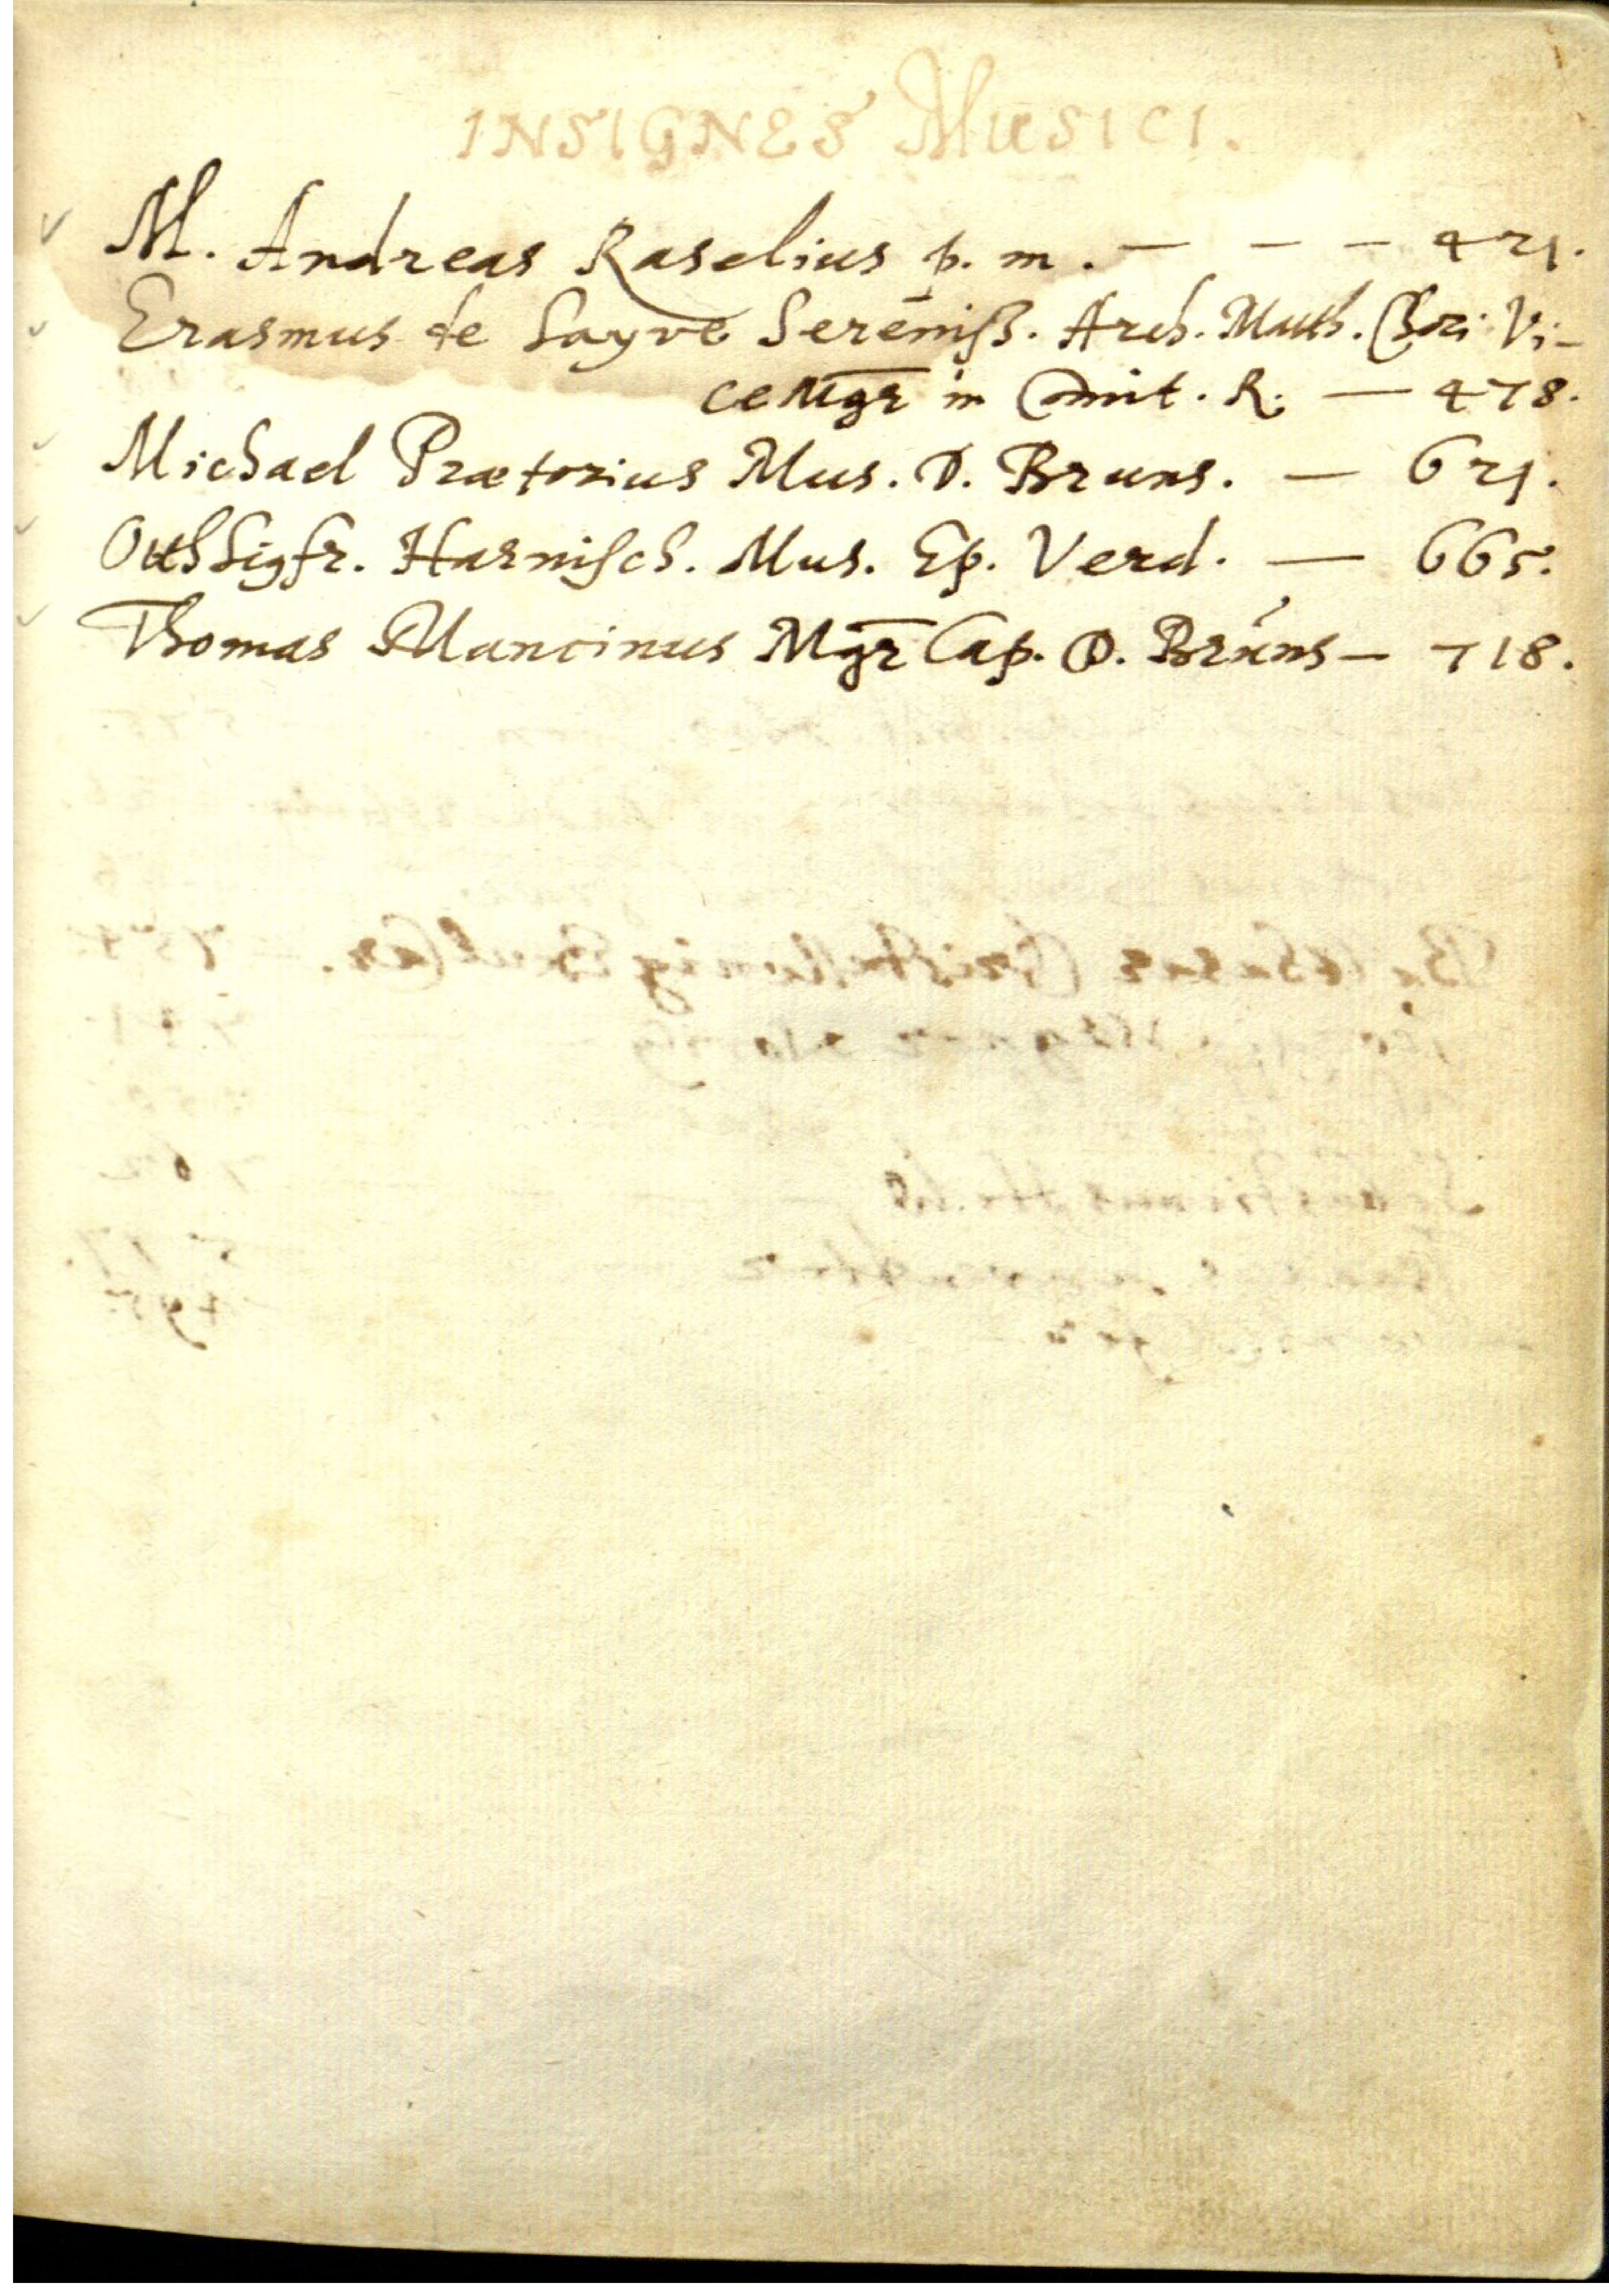 INSIGNES MUSICI.
M. Andreas Raselius p. m. — — — 421.
Erasmus de Sayve Sereniss. Arch. Matth. Chori Vi-
ceMgr in Comit. R. — 478.
Michael Prætorius Mus. D. Bruns. — 621.
Otth Sigfr. Harnisch. Mus. Ep. Verd. — 665.
Thomas Mancinus Mgr Cap. D. Bruns — 718.